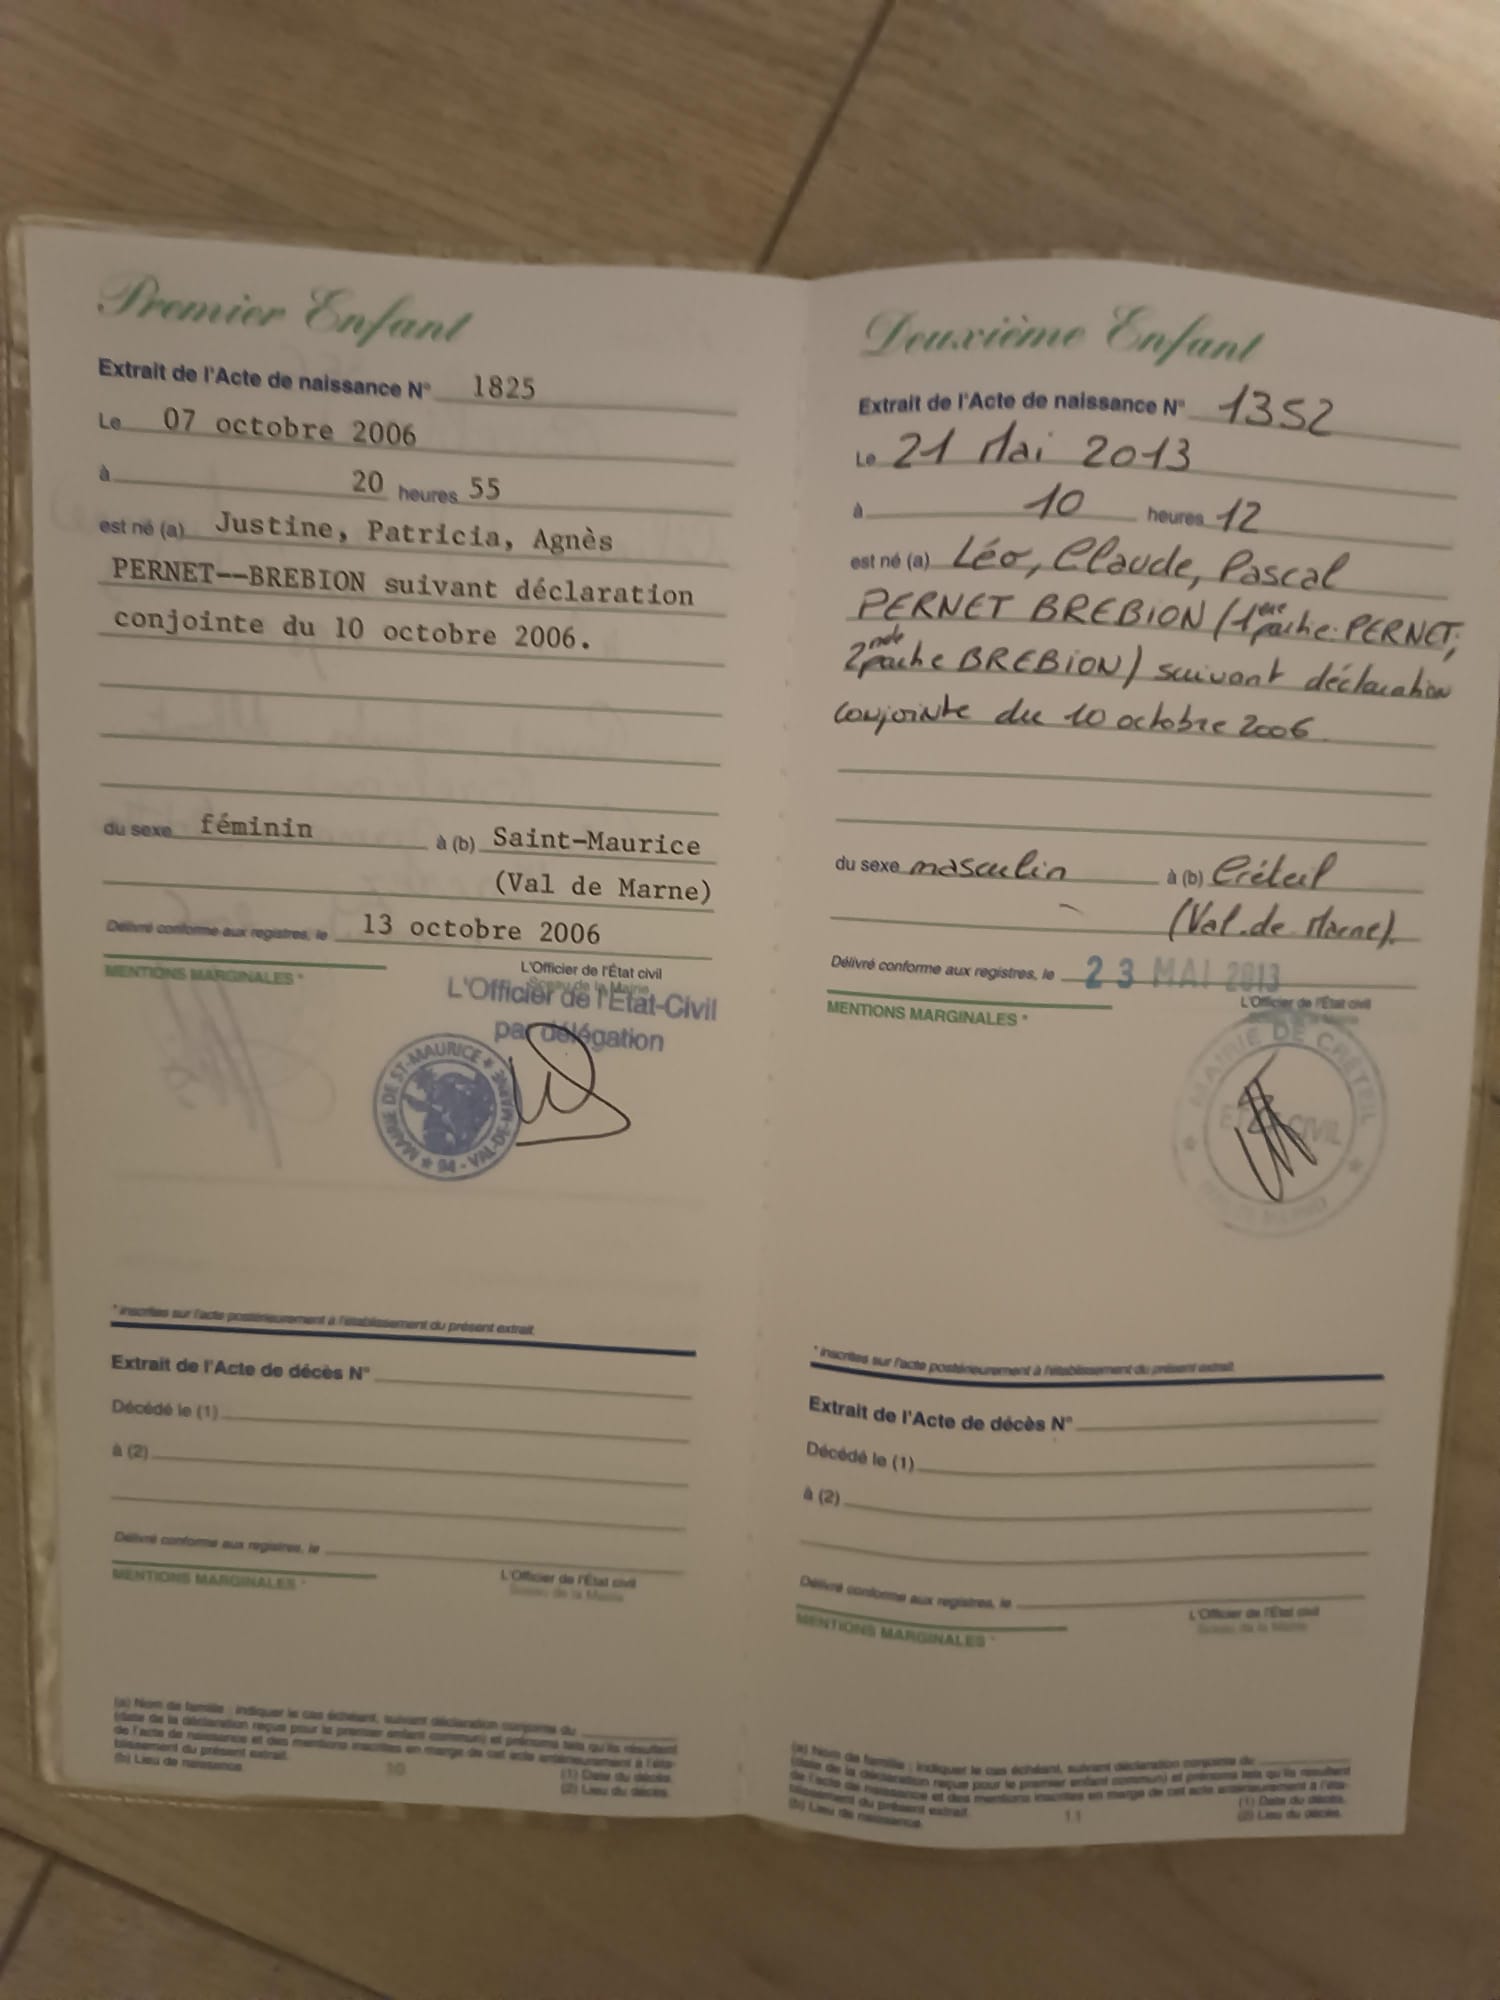 Premier Enfant
Extrait de l'Acte de naissance N° 1825
Le 07 octobre 2006
à 20 heures 55
est né (a) Justine, Patricia, Agnès
PERNET--BREBION suivant déclaration
conjointe du 10 octobre 2006.
du sexe féminin à (b) Saint-Maurice
(Val de Marne)
Délivré conforme aux registres, le 13 octobre 2006
MENTIONS MARGINALES *
L'Officier de l'État civil
Sceau de la Mairie
L'Officier de l'État-Civil
par délégation
MAIRIE DE ST-MAURICE * 94 - VAL-DE-MARNE *
* inscrites sur l'acte postérieurement à l'établissement du présent extrait.
Extrait de l'Acte de décès N°
Décédé le (1)
à (2)
Délivré conforme aux registres, le
MENTIONS MARGINALES *
L'Officier de l'État civil
Sceau de la Mairie
(a) Nom de famille : indiquer le cas échéant, suivant déclaration conjointe du
(date de la déclaration reçue pour le premier enfant commun) et prénoms tels qu'ils résultent
de l'acte de naissance et des mentions inscrites en marge de cet acte antérieurement à l'éta-
blissement du présent extrait.
(b) Lieu de naissance.
(1) Date du décès.
(2) Lieu du décès.
10
Deuxième Enfant
Extrait de l'Acte de naissance N° 1352
Le 21 Mai 2013
à 10 heures 12
est né (a) Léo, Claude, Pascal
PERNET BREBION (1ère partie: PERNET;
2nde partie BREBION) suivant déclaration
conjointe du 10 octobre 2006.
du sexe masculin à (b) Créteil
(Val.de Marne).
Délivré conforme aux registres, le 23 MAI 2013
MENTIONS MARGINALES *
L'Officier de l'État civil
Sceau de la Mairie
MAIRIE DE CRÉTEIL
ÉTAT CIVIL
* inscrites sur l'acte postérieurement à l'établissement du présent extrait.
Extrait de l'Acte de décès N°
Décédé le (1)
à (2)
Délivré conforme aux registres, le
MENTIONS MARGINALES *
L'Officier de l'État civil
Sceau de la Mairie
(a) Nom de famille : indiquer le cas échéant, suivant déclaration conjointe du
(date de la déclaration reçue pour le premier enfant commun) et prénoms tels qu'ils résultent
de l'acte de naissance et des mentions inscrites en marge de cet acte antérieurement à l'éta-
blissement du présent extrait.
(b) Lieu de naissance.
(1) Date du décès.
(2) Lieu du décès.
11